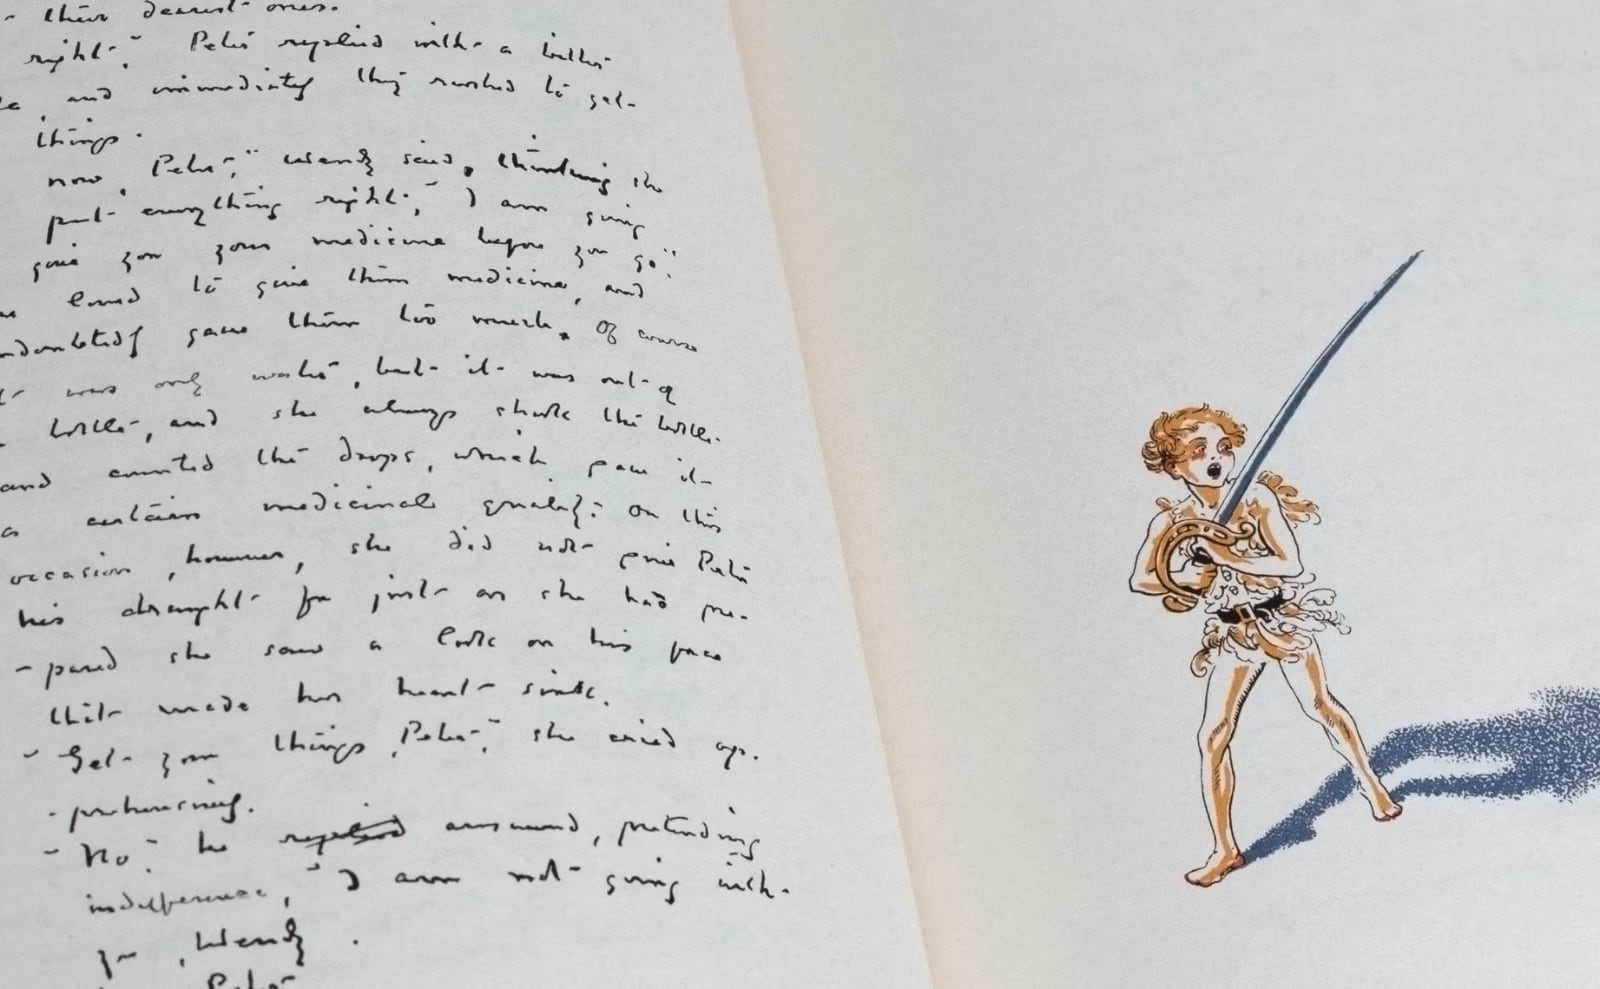 - their dearest ones.
right," Peter replied with a bitter
and immediately they rushed to get
things.
now, Peter," Wendy said, thinking she
put everything right, "I am going
give you your medicine before you go."
loved to give them medicine, and
undoubtedly gave them too much. Of course
it was only water, but it was out of
bottle, and she always shook the bottle
and counted the drops, which gave it
a certain medicinal quality. On this
occasion, however, she did not give Peter
his draught for just as she had pre-
-pared she saw a look on his face
that made her heart sink.
"Get your things, Peter," she cried ap.
-prehensively.
"No," he replied answered, pretending
indifference, "I am not going with
you, Wendy.
Peter